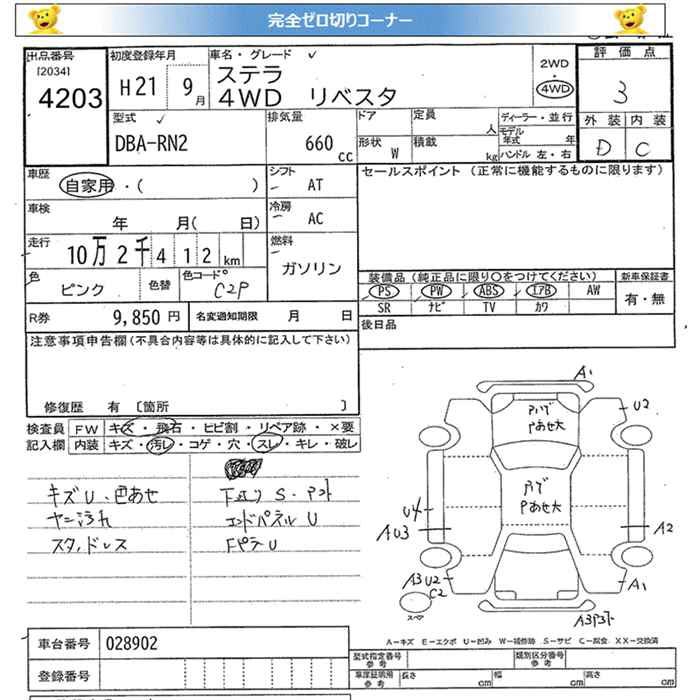 完全ゼロ切りコーナー
出品番号
[2034]
4203
初度登録年月
H21 9月
車名・グレード
ステラ
4WD リベスタ
2WD
・
4WD
評価点
3
外装 内装
D C
型式
DBA-RN2
排気量
660 cc
ドア
定員
人
形状
W
積載
kg
ディーラー・並行
モデル年式 年
ハンドル 左・右
車歴
自家用・( )
シフト
AT
セールスポイント (正常に機能するものに限ります)
車検
年 月( 日)
冷房
AC
走行
10万2千412km
燃料
ガソリン
色
ピンク
色替
色コード
C2P
装備品 (純正品に限り〇をつけてください)
新車保証書
PS PW ABS エアB AW
有・無
SR ナビ TV カワ
R券 9,850円
名変通知期限 月 日
後日品
注意事項申告欄(不具合内容等は具体的に記入して下さい)
修復歴 有 〔箇所 〕
検査員 FW キズ・飛石・ヒビ割・リペア跡・×要
記入欄 内装 キズ・汚レ・コゲ・穴・スレ・キレ・破レ
キズU・色あせ
ヤニ汚れ
スタッドレス
エンドパネルU
A1
U2
U4
AU3
A2
A3 U2
C2
A1
スペア
A-キズ E-エクボ U-凹み W-補修跡 S-サビ C-腐食 XX-交換済
車台番号 028902
登録番号
型式指定番号
参考
類別区分番号
参考
車庫証明用
参考
長さ cm
幅 cm
高さ cm